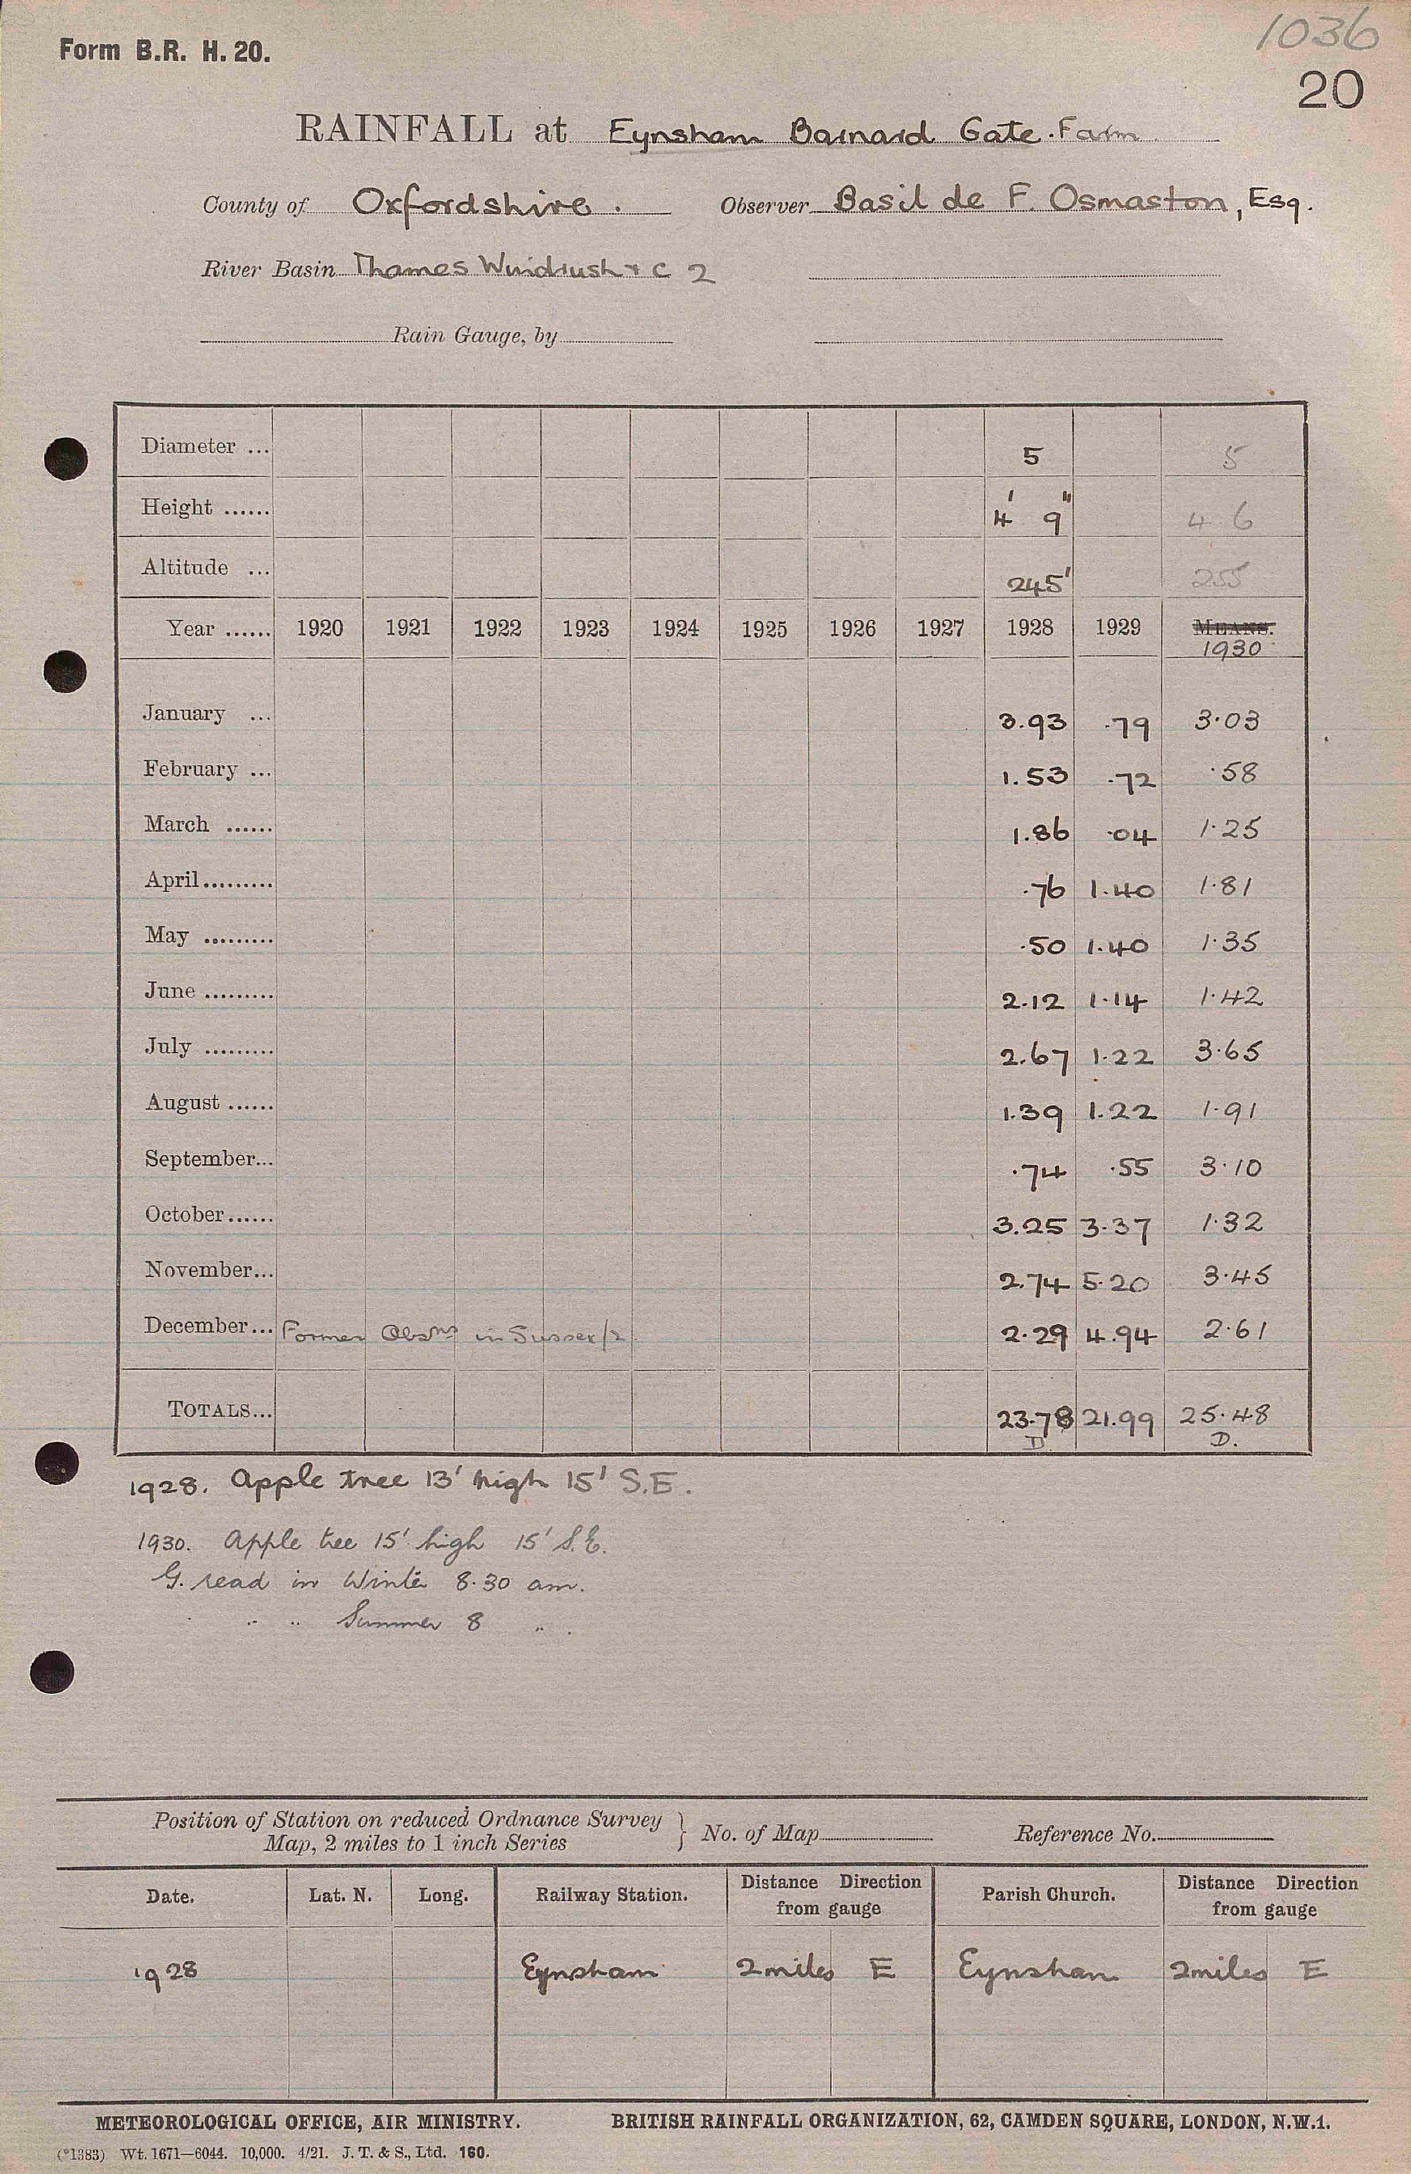 1036
Form B.R. H. 20.
20
RAINFALL at Eynsham Barnard Gate. Farm.
County of Oxfordshire. Observer Basil de F. Osmaston, Esq.
River Basin Thames Windrush & C 2
Rain Gauge, by
Diameter ... 5 5
Height ...... 4' 9" 4 6
Altitude ... 245' 255
Year ...... 1920 1921 1922 1923 1924 1925 1926 1927 1928 1929 MEANS.
1930
January ... 3.93 .79 3.03
February ... 1.53 .72 .58
March ...... 1.86 .04 1.25
April ......... .76 1.40 1.81
May ......... .50 1.40 1.35
June ......... 2.12 1.14 1.42
July ......... 2.67 1.22 3.65
August ...... 1.39 1.22 1.91
September... .74 .55 3.10
October ...... 3.25 3.37 1.32
November... 2.74 5.20 3.45
December... Former Obsns in Sussex/2 2.29 4.94 2.61
TOTALS... 23.78 21.99 25.48
D D.
1928. Apple tree 13' high 15' S.E.
1930. Apple tree 15' high 15' S.E.
G. read in Winter 8.30 am.
" " Summer 8 " .
Position of Station on reduced Ordnance Survey
Map, 2 miles to 1 inch Series } No. of Map Reference No.
Date. Lat. N. Long. Railway Station. Distance Direction from gauge Parish Church. Distance Direction from gauge
1928 Eynsham 2 miles E Eynsham 2 miles E
METEOROLOGICAL OFFICE, AIR MINISTRY. BRITISH RAINFALL ORGANIZATION, 62, CAMDEN SQUARE, LONDON, N.W.1.
(*1383) Wt. 1671—6044. 10,000. 4/21. J. T. & S., Ltd. 160.